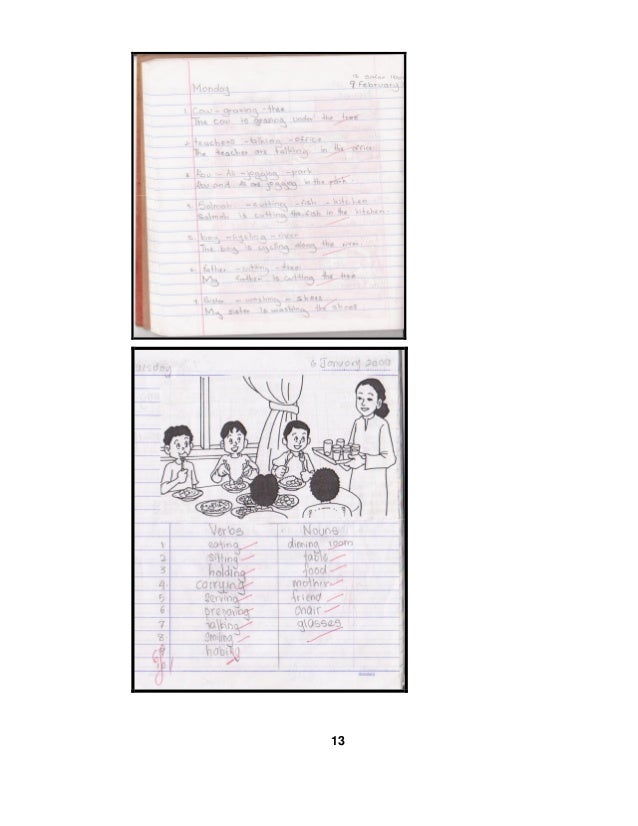 Monday
9 February
1. Cow - grazing - tree
The cow is grazing under the tree
2. teachers - talking - office
The teacher are talking in the office
3. Fou - As - jogging - park
and As are jogging in the park.
4. Salmah - cutting - fish - kitchen
Salmah is cutting the fish in the kitchen.
5. boy - cycling - river
The boy is cycling along the
6. Father - cutting - tree
My Father is cutting the tree
7. Sister - washing - shoes
My sister is washing the shoes
6 January 2009
Verbs Nouns
1 eating dinning room
2 sitting table
3 holding food
4 carrying mother
5 serving friend
6 preparing chair
7 talking glasses
8 smiling
9
10
13